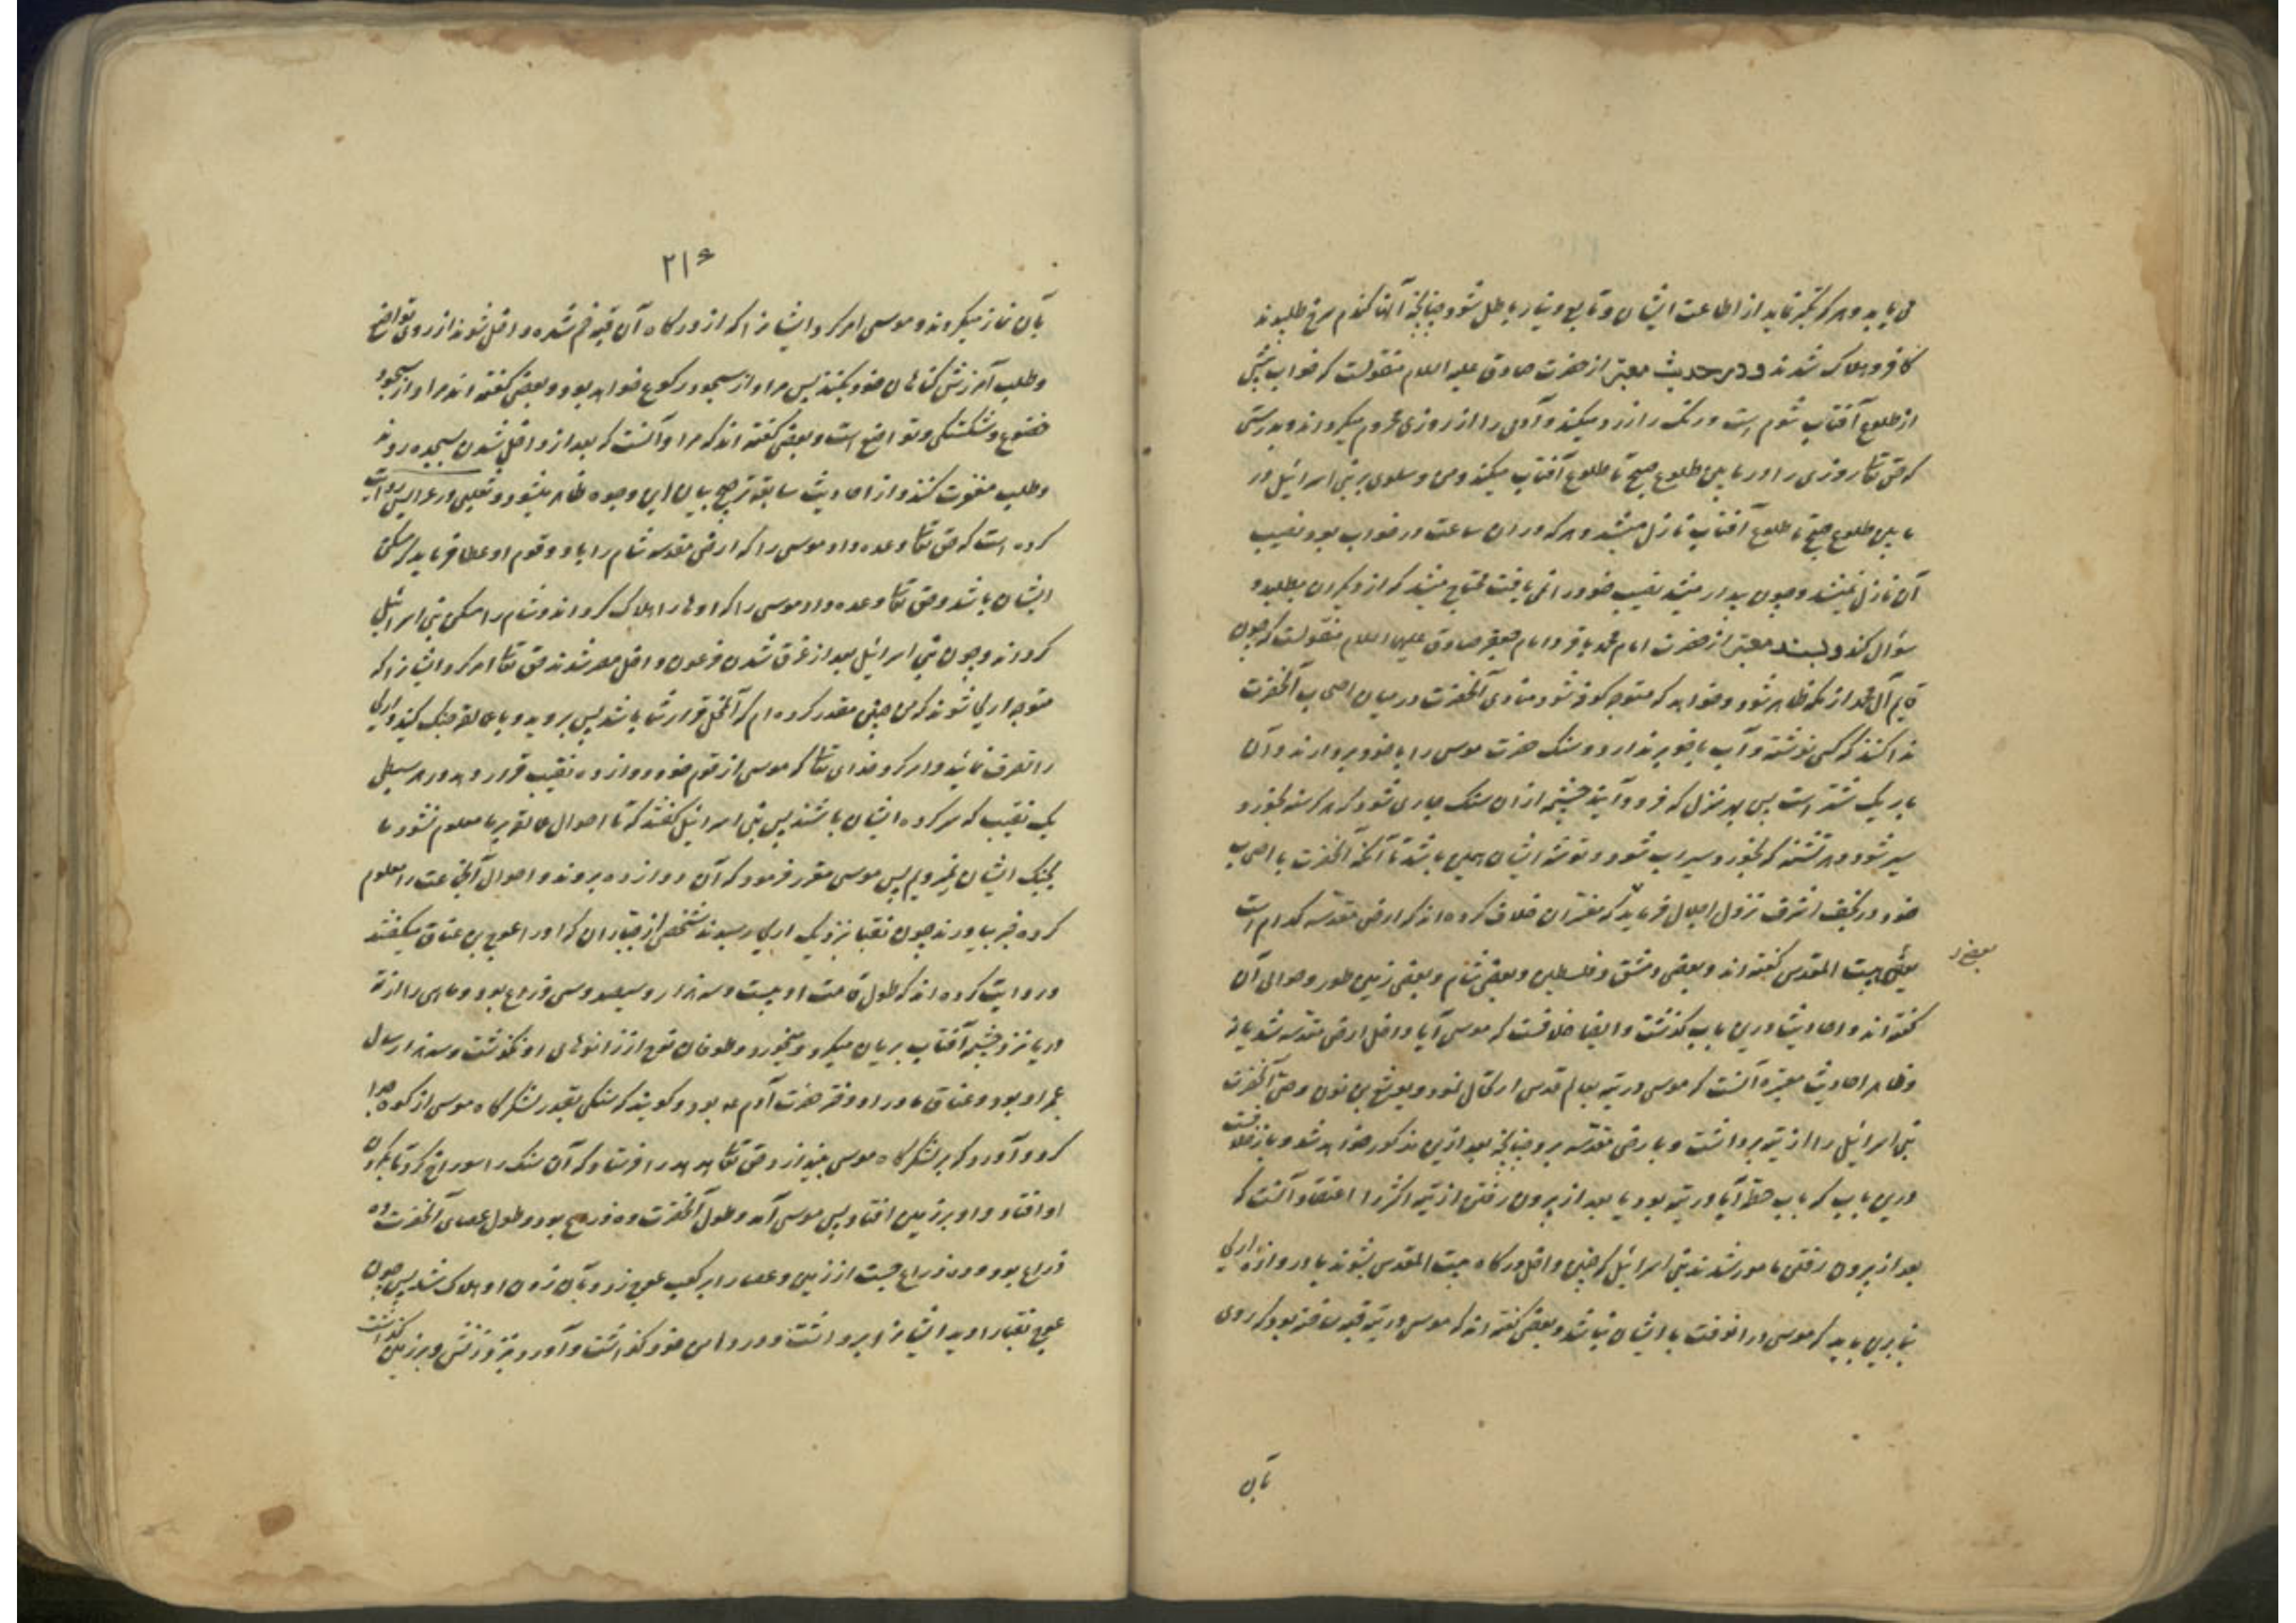 می‌یابد و هر که تکبر نماید از اطاعت ایشان و تابع دنیا باطل شود چنانچه آنها گندم سرخ طلبیدند
کافر و هلاک شدند و در حدیث معتبر از حضرت صادق علیه السلام منقولست که خواب پیش
از طلوع آفتاب شوم است و رنگ را زرد میکند و آدمی را از روزی محروم میگرداند و بدرستی
که حق تعالی روزی را در مابین طلوع صبح تا طلوع آفتاب میکند و من و سلوی بر بنی اسرائیل در
مابین طلوع صبح تا طلوع آفتاب نازل میشد و هر که در ان ساعت در خواب بود نصیب
آن نازل نمیشد و چون بیدار میشد نصیب خود را نمی یافت محتاج میشد که از دیگران بطلبد و
سؤال کند و بسند معتبر از حضرت امام محمد باقر و امام جعفر صادق علیهما السلام منقولست که چون
قایم آل محمد از مکه ظاهر شود و خواهد که متوجه کوفه شود منادی آنحضرت در میان اصحاب آنحضرت
ندا کند که کسی توشه و آب با خود برندارد و سنک حضرت موسی را با خود بردارند و آن
بار یک شتر است پس بهر منزل که فرود آیند چشمه از ان سنک جاری شود که هر کرسنه بخورد
سیر شود و هر تشنه که بخورد سیراب شود و توشه ایشان همین باشد تا آنکه آنحضرت با اصحاب
خود در نجف اشرف نزول اجلال فرماید که مفسّران خلاف کرده اند که ارض مقدّسه کدام است
بعضی بیت المقدس کفته اند و بعضی دمشق و فلسطین و بعضی شام و بعضی زمین طور و حوالی آن
کفته اند و احادیث درین باب گذشت و ایضا خلافست که موسی آیا داخل ارض مقدّسه شد یا نه
و ظاهر احادیث معتبره آنست که موسی در تیه بعالم قدس ارتحال نمود و یوشع بن نون وصی آنحضرت
بنی اسرائیل را از تیه برداشت و بارض مقدّسه برد چنانچه بعد ازین مذکور خواهد شد و باز خلافست
درین باب که باب حطّه آیا در تیه بود یا بعد از بیرون رفتن از تیه اکثر را اعتقاد آنست که
بعد از بیرون رفتن مامور شدند بنی اسرائیل که چنین داخل درکاه بیت المقدس بشوند یا دروازه اریحا
بنابرین باید که موسی در انوقت با ایشان نباشد و بعضی کفته اند که موسی در تیه قبه بود که روی
بآن
۲۱۶
بآن نماز میکردند و موسی امر کرد ایشانرا که از درکاه آن قبه خم شده داخل شوند از روی تواضع
و طلب آمرزش کناهان خود بکنند پس مراد از سجود رکوع خواهد بود و بعضی کفته اند مراد از سجود
خضوع و شکستگی و تواضع است و بعضی کفته اند که مراد آنست که بعد از داخل شدن بسجده روند
و طلب مغفرت کنند و از احادیث سابقه ترجیح بیان این وجوه ظاهر میشود و ثعلبی در عرایس روایت
کرده است که حق تعالی وعده داد موسی را که ارض مقدسه شام را باو و قوم او عطا فرماید که مسکن
ایشان باشد و حق تعالی وعده داد موسی را که اونها را هلاک کرداند و شام را مسکن بنی اسرائیل
کرداند و چون بنی اسرائیل بعد از غرق شدن فرعون داخل مصر شدند حق تعالی امر کرد ایشانرا که
متوجه اریحا شوند که من چنین مقدر کرده ام که آنمحل قرار شما باشد پس بروید و با عمالقه جنک کنید و اریحا
را تصرف نمائید و امر کرد خدای تعالی که موسی از قوم خود دوازده نقیب قرار دهد در هر سبطی
یک نقیب که سرکرده ایشان باشند پس بنی اسرائیل کفتند که تا احوال عمالقه بر ما معلوم نشود ما
بجنک ایشان نمیرویم پس موسی مقرر فرمود که آن دوازده بروند و احوال آنجماعت را معلوم
کرده خبر بیاورند چون نقبا نزدیک اریحا رسیدند شخصی از جبّاران که اورا عوج بن عناق میکفتند
و روایت کرده اند که طول قامت او بیست و سه هزار و سیصد و سی ذراع بود و ماهی را از ته
دریا نزد چشمه آفتاب بریان میکرد و میخورد و طوفان نوح از زانوهای او نکذشت و سه هزار سال
عمر او بود و عناق مادر او دختر حضرت آدم عه بود و کویند که سنکی بقدر لشکرگاه موسی از کوه جدا
کرد و آورد که بر لشکرگاه موسی بیندازد حق تعالی هدهد را فرستاد که آن سنک را سوراخ کرد تا بکردن
او افتاد و او بر زمین افتاد پس موسی آمد و طول آنحضرت ده ذراع بود و طول عصای آنحضرت ده
ذراع بود و ده ذراع جست از زمین و عصا را بر کعب عوج زد و بآن زدن او هلاک شد پس چون
عوج نقبا را دید ایشانرا برداشت و در دامن خود کذاشت و آورد نزد زنش و بر زمین کذاشت